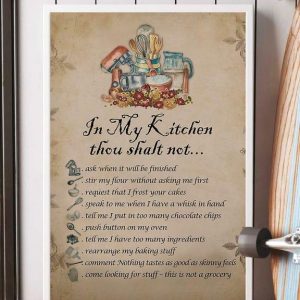 In My Kitchen
thou shalt not...
. ask when it will be finished
. stir my flour without asking me first
. request that I frost your cakes
. speak to me when I have a whisk in hand
. tell me I put in too many chocolate chips
. push button on my oven
. tell me I have too many ingredients
. rearrange my baking stuff
. comment Nothing tastes as good as skinny feels
. come looking for stuff – this is not a grocery